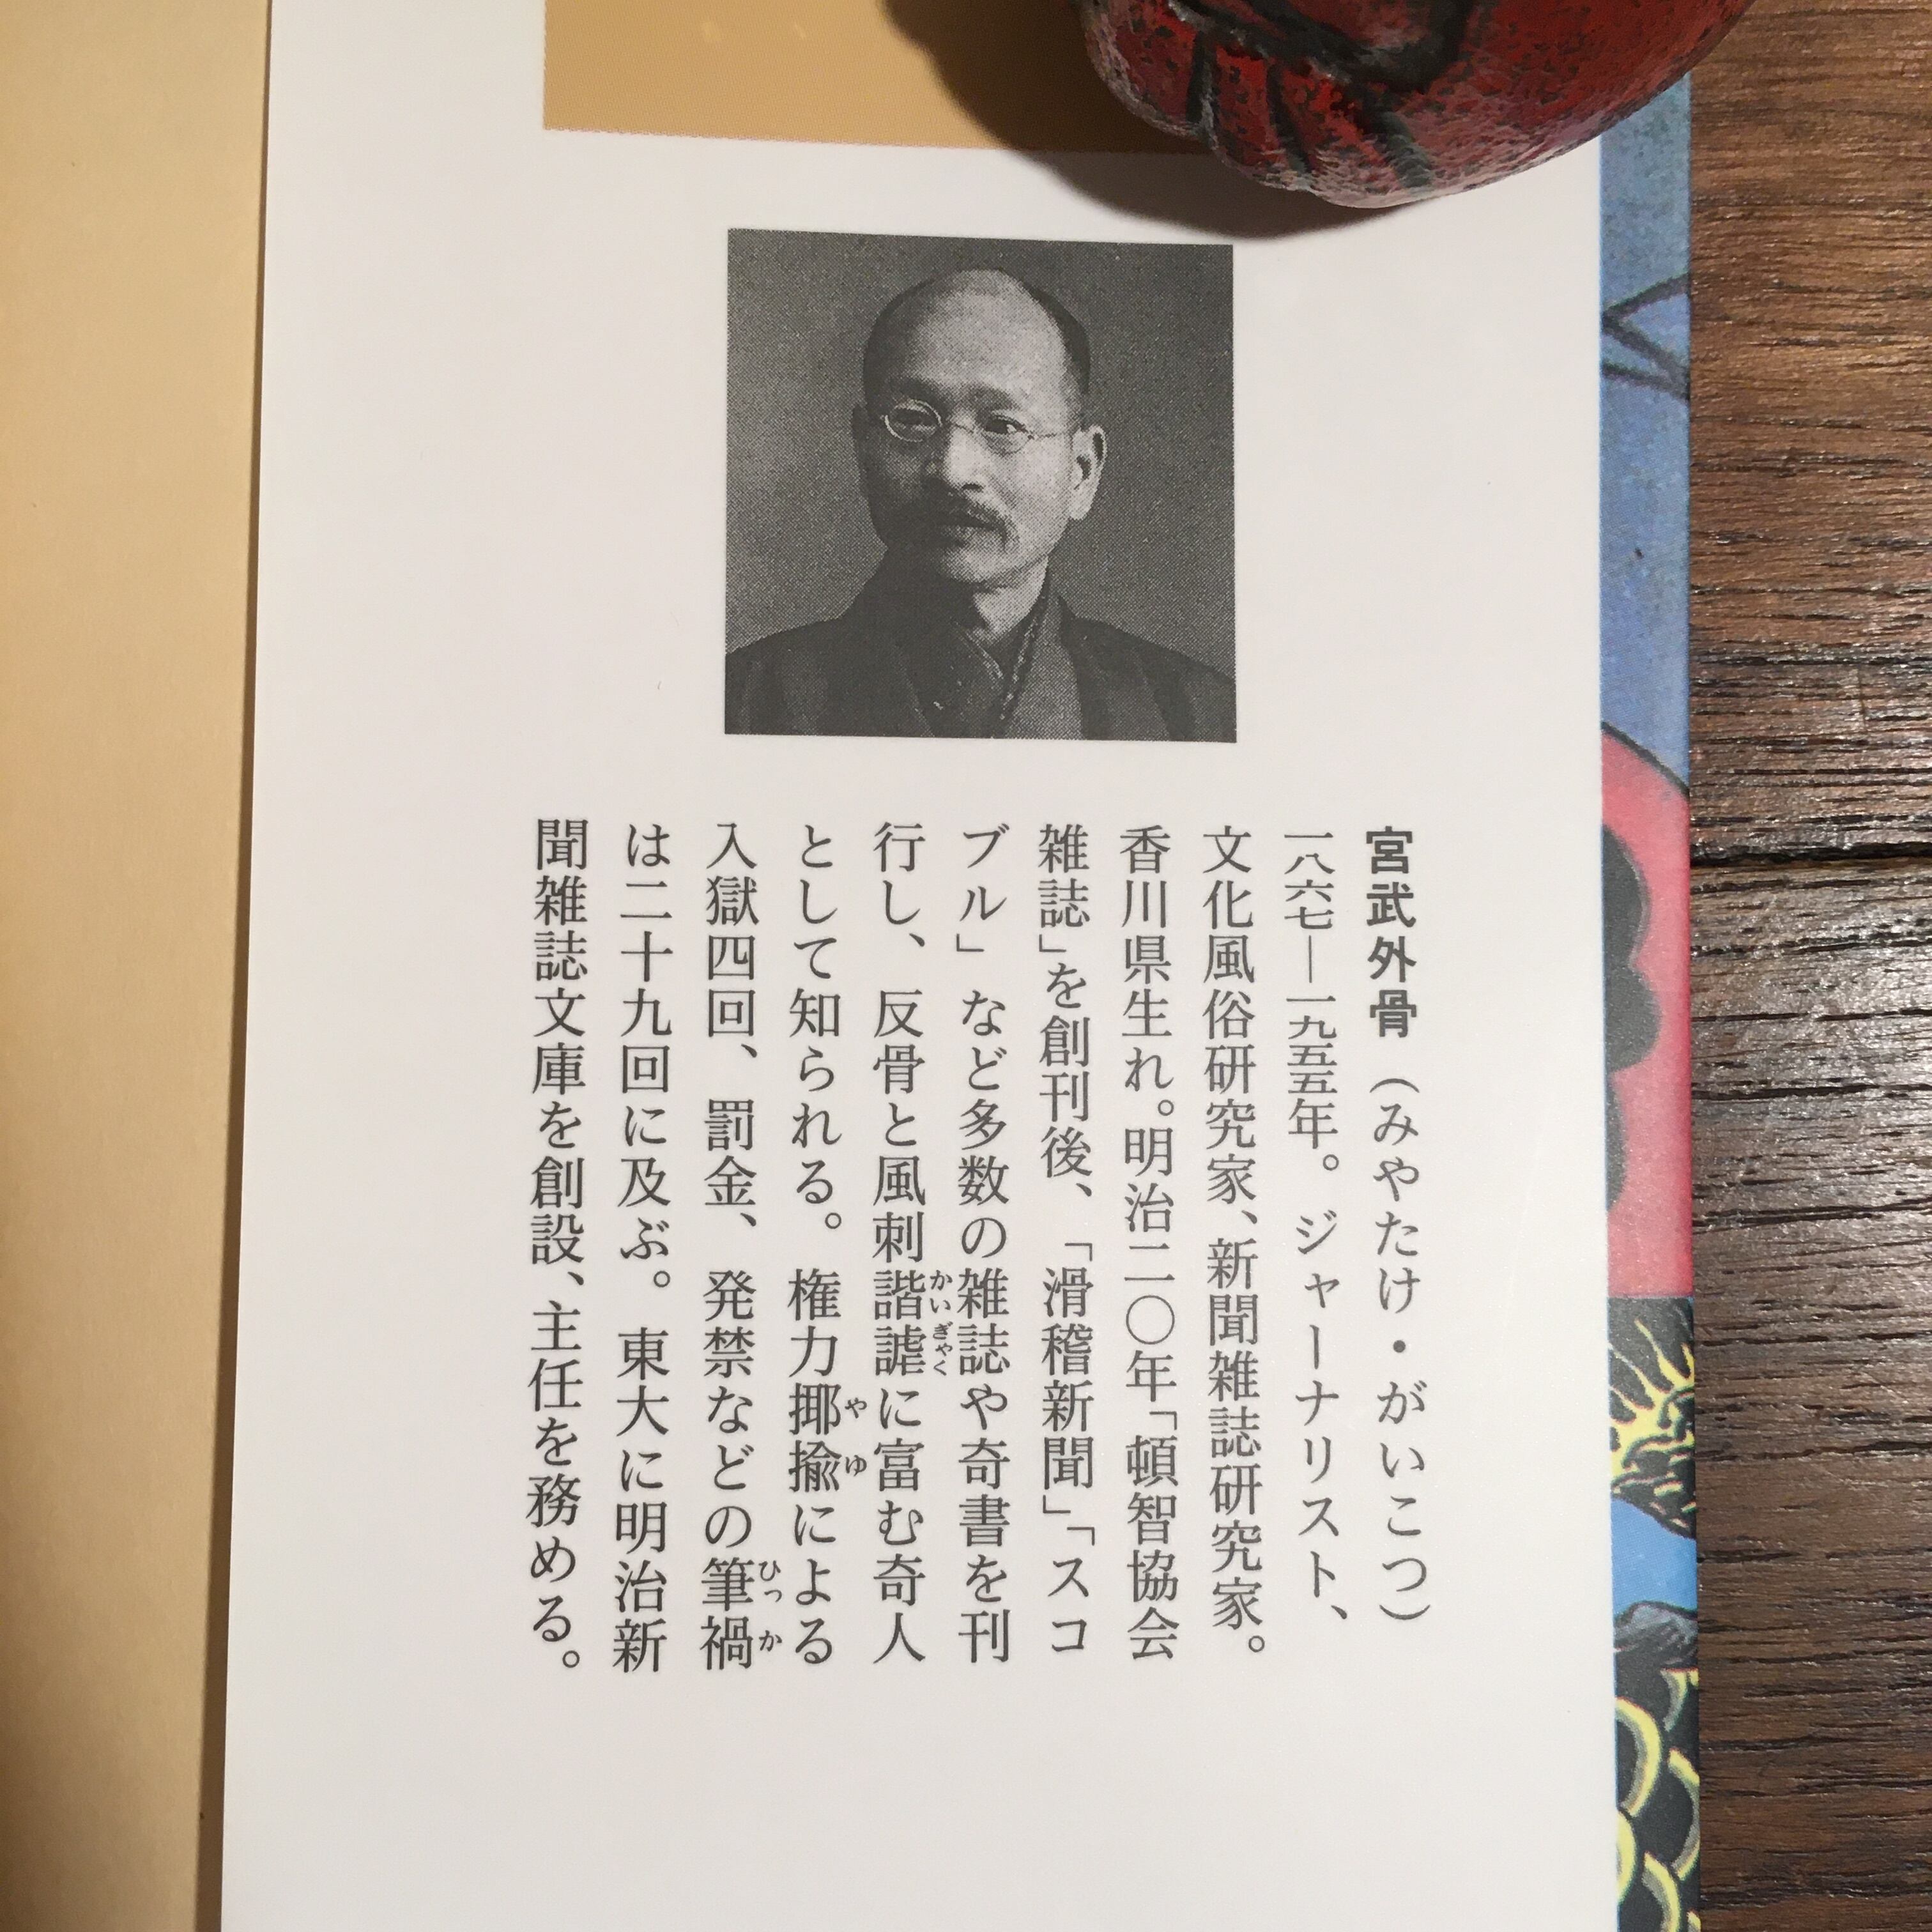 宮武外骨（みやたけ・がいこつ）
一八六七―一九五五年。ジャーナリスト、
文化風俗研究家、新聞雑誌研究家。
香川県生れ。明治二〇年「頓智協会
雑誌」を創刊後、「滑稽新聞」「スコ
ブル」など多数の雑誌や奇書を刊
行し、反骨と風刺諧謔に富む奇人
かいぎゃく
として知られる。権力揶揄による
やゆ
入獄四回、罰金、発禁などの筆禍
ひっか
は二十九回に及ぶ。東大に明治新
聞雑誌文庫を創設、主任を務める。